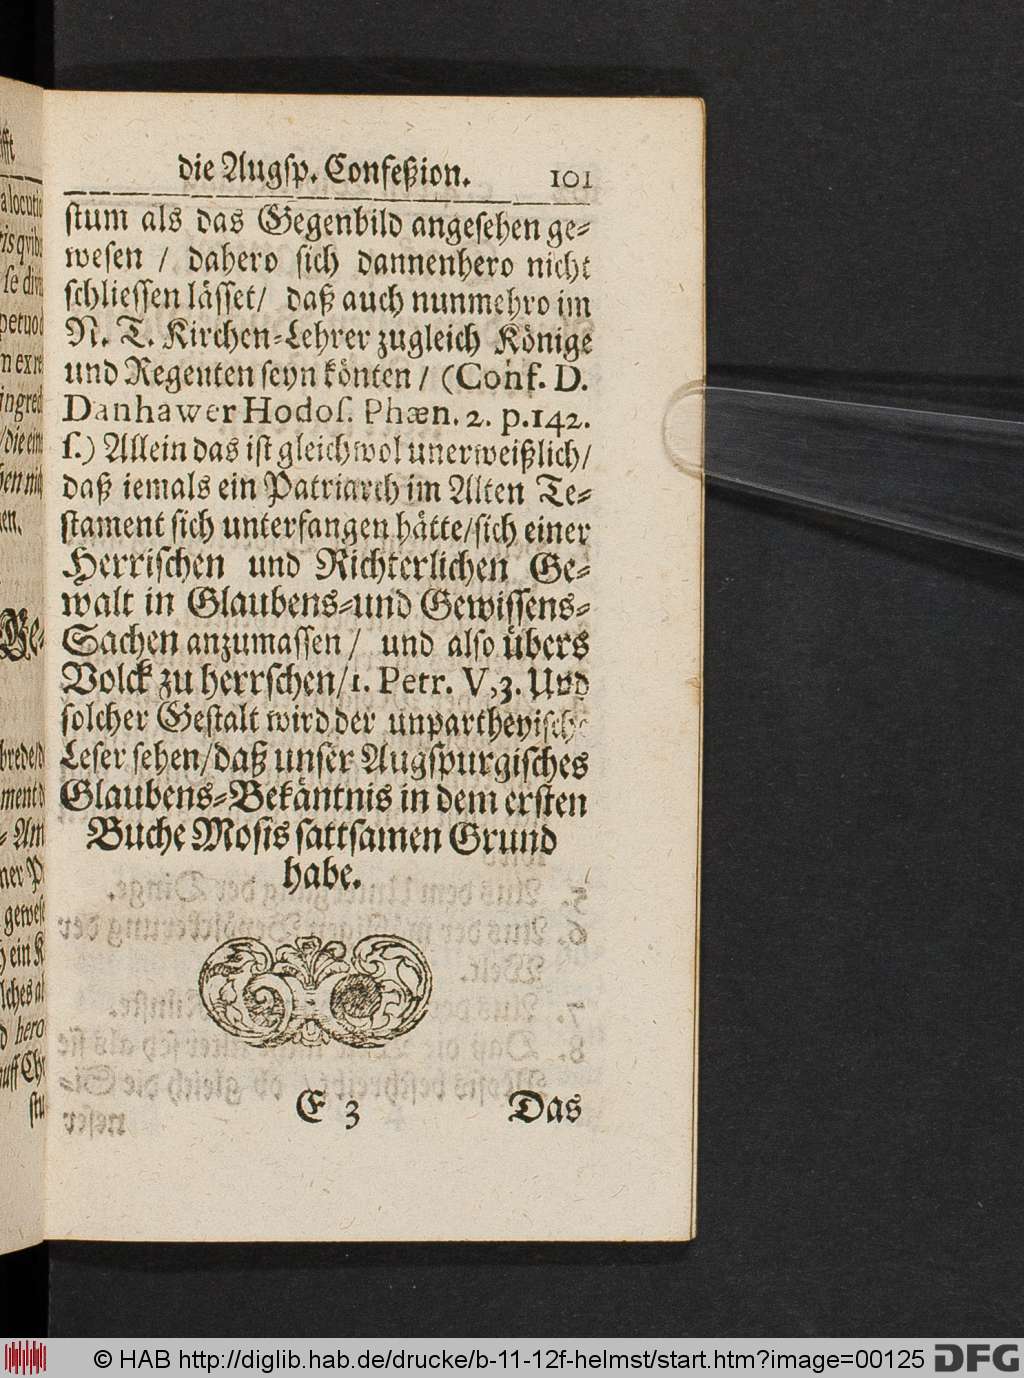 die Augsp. Confeßion. 101
stum als das Gegenbild angesehen ge-
wesen / dahero sich dannenhero nicht
schliessen lässet/ daß auch nunmehro im
N. T. Kirchen-Lehrer zugleich Könige
und Regenten seyn könten / (Conf. D.
Danhawer Hodos. Phæn. 2. p. 142.
s.) Allein das ist gleichwol unerweißlich/
daß iemals ein Patriarch im Alten Te-
stament sich unterfangen hätte/sich einer
Herrischen und Richterlichen Ge-
walt in Glaubens-und Gewissens-
Sachen anzumassen / und also übers
Volck zu herrschen/1. Petr. V,3. Und
solcher Gestalt wird der unpartheyische
Leser sehen/daß unser Augspurgisches
Glaubens-Bekäntnis in dem ersten
Buche Mosis sattsamen Grund
habe.
E 3 Das
© HAB http://diglib.hab.de/drucke/b-11-12f-helmst/start.htm?image=00125 DFG